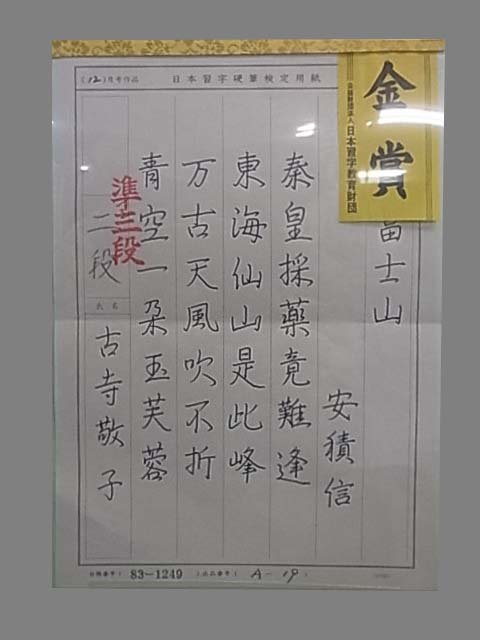 (12)月号作品 日本習字硬筆検定用紙
金賞
公益財団法人 日本習字教育財団
富士山
安積信
秦皇採薬竟難逢
東海仙山是此峰
万古天風吹不折
青空一朶玉芙蓉
準三段
二段
氏名
古寺敬子
83-1249
(出品番号) A-19